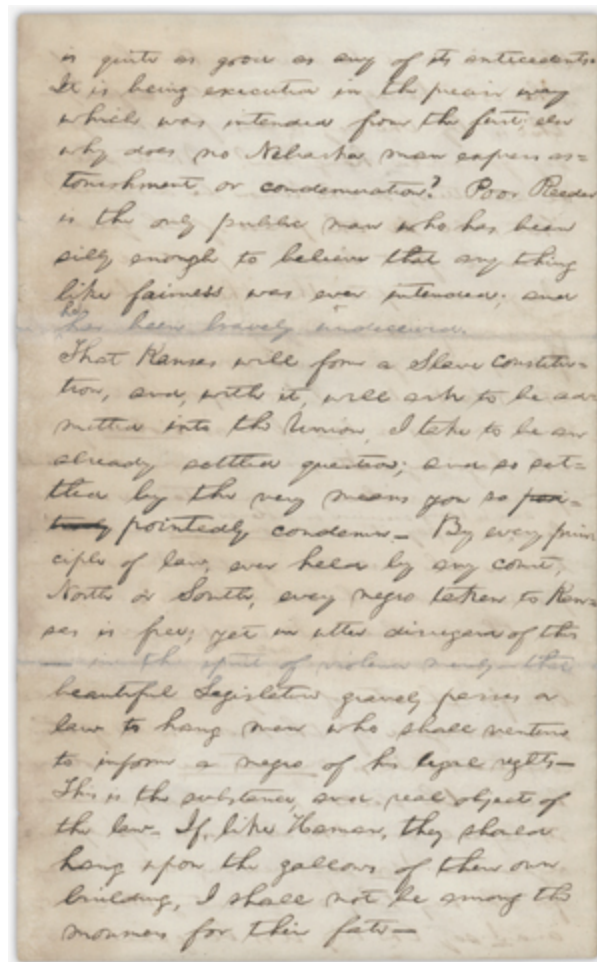 is quite as good as any of its antecedents.
It is being executed in the precise way
which was intended from the first; else
why does no Nebraska man express as=
tonishment or condemnation? Poor Reeder
is the only public man who has been
silly enough to believe that any thing
like fairness was ever intended; and
he has been bravely undeceived.
That Kansas will form a Slave constitu=
tion, and, with it, will ask to be ad=
mitted into the Union, I take to be an
already settled question; and so set=
tled by the very means you so
pointedly condemn_ By every prin
ciple of law, ever held by any court,
North or South, every negro taken to Kan=
sas is free; yet in utter disregard of this
— in the spirit of violence merely— that
beautiful Legislature gravely passes a
law to hang men who shall venture
to inform a negro of his legal rights—
This is the substance, and real object of
the law_ If, like Haman, they should
hang upon the gallows of their own
building, I shall not be among the
mourners for their fate—